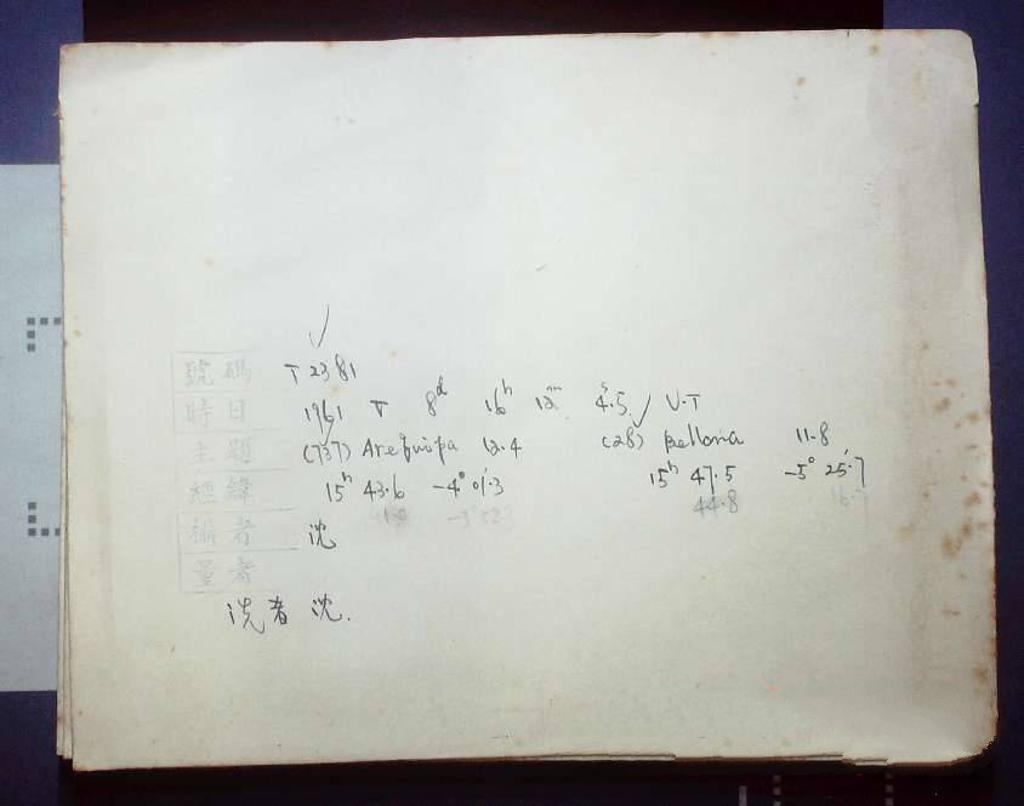 號碼 T 2381
時日 1961 V 8d 16h 12m 4.5s U.T
主題 (737) Arequipa 12.4 (28) Bellona 11.8
經緯 15h 43.6 -4° 01.'3 15h 47.5 -5° 25.'7
44.8
攝者 沈
量者
洗者 沈.